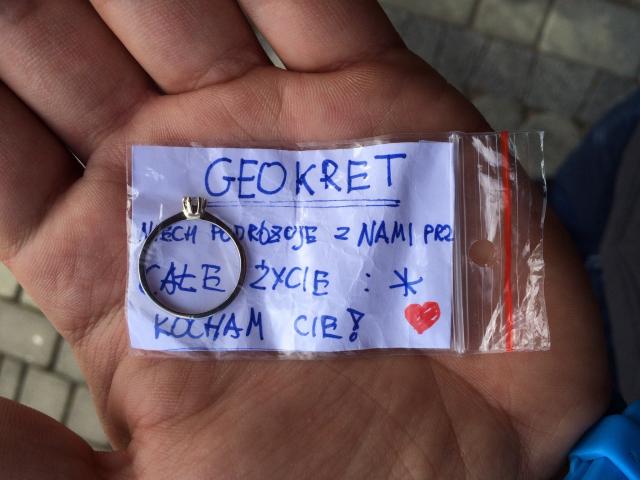 GEOKRET
NIECH PODRÓŻUJE Z NAMI PRZ
CAŁE ŻYCIE : *
KOCHAM CIĘ!